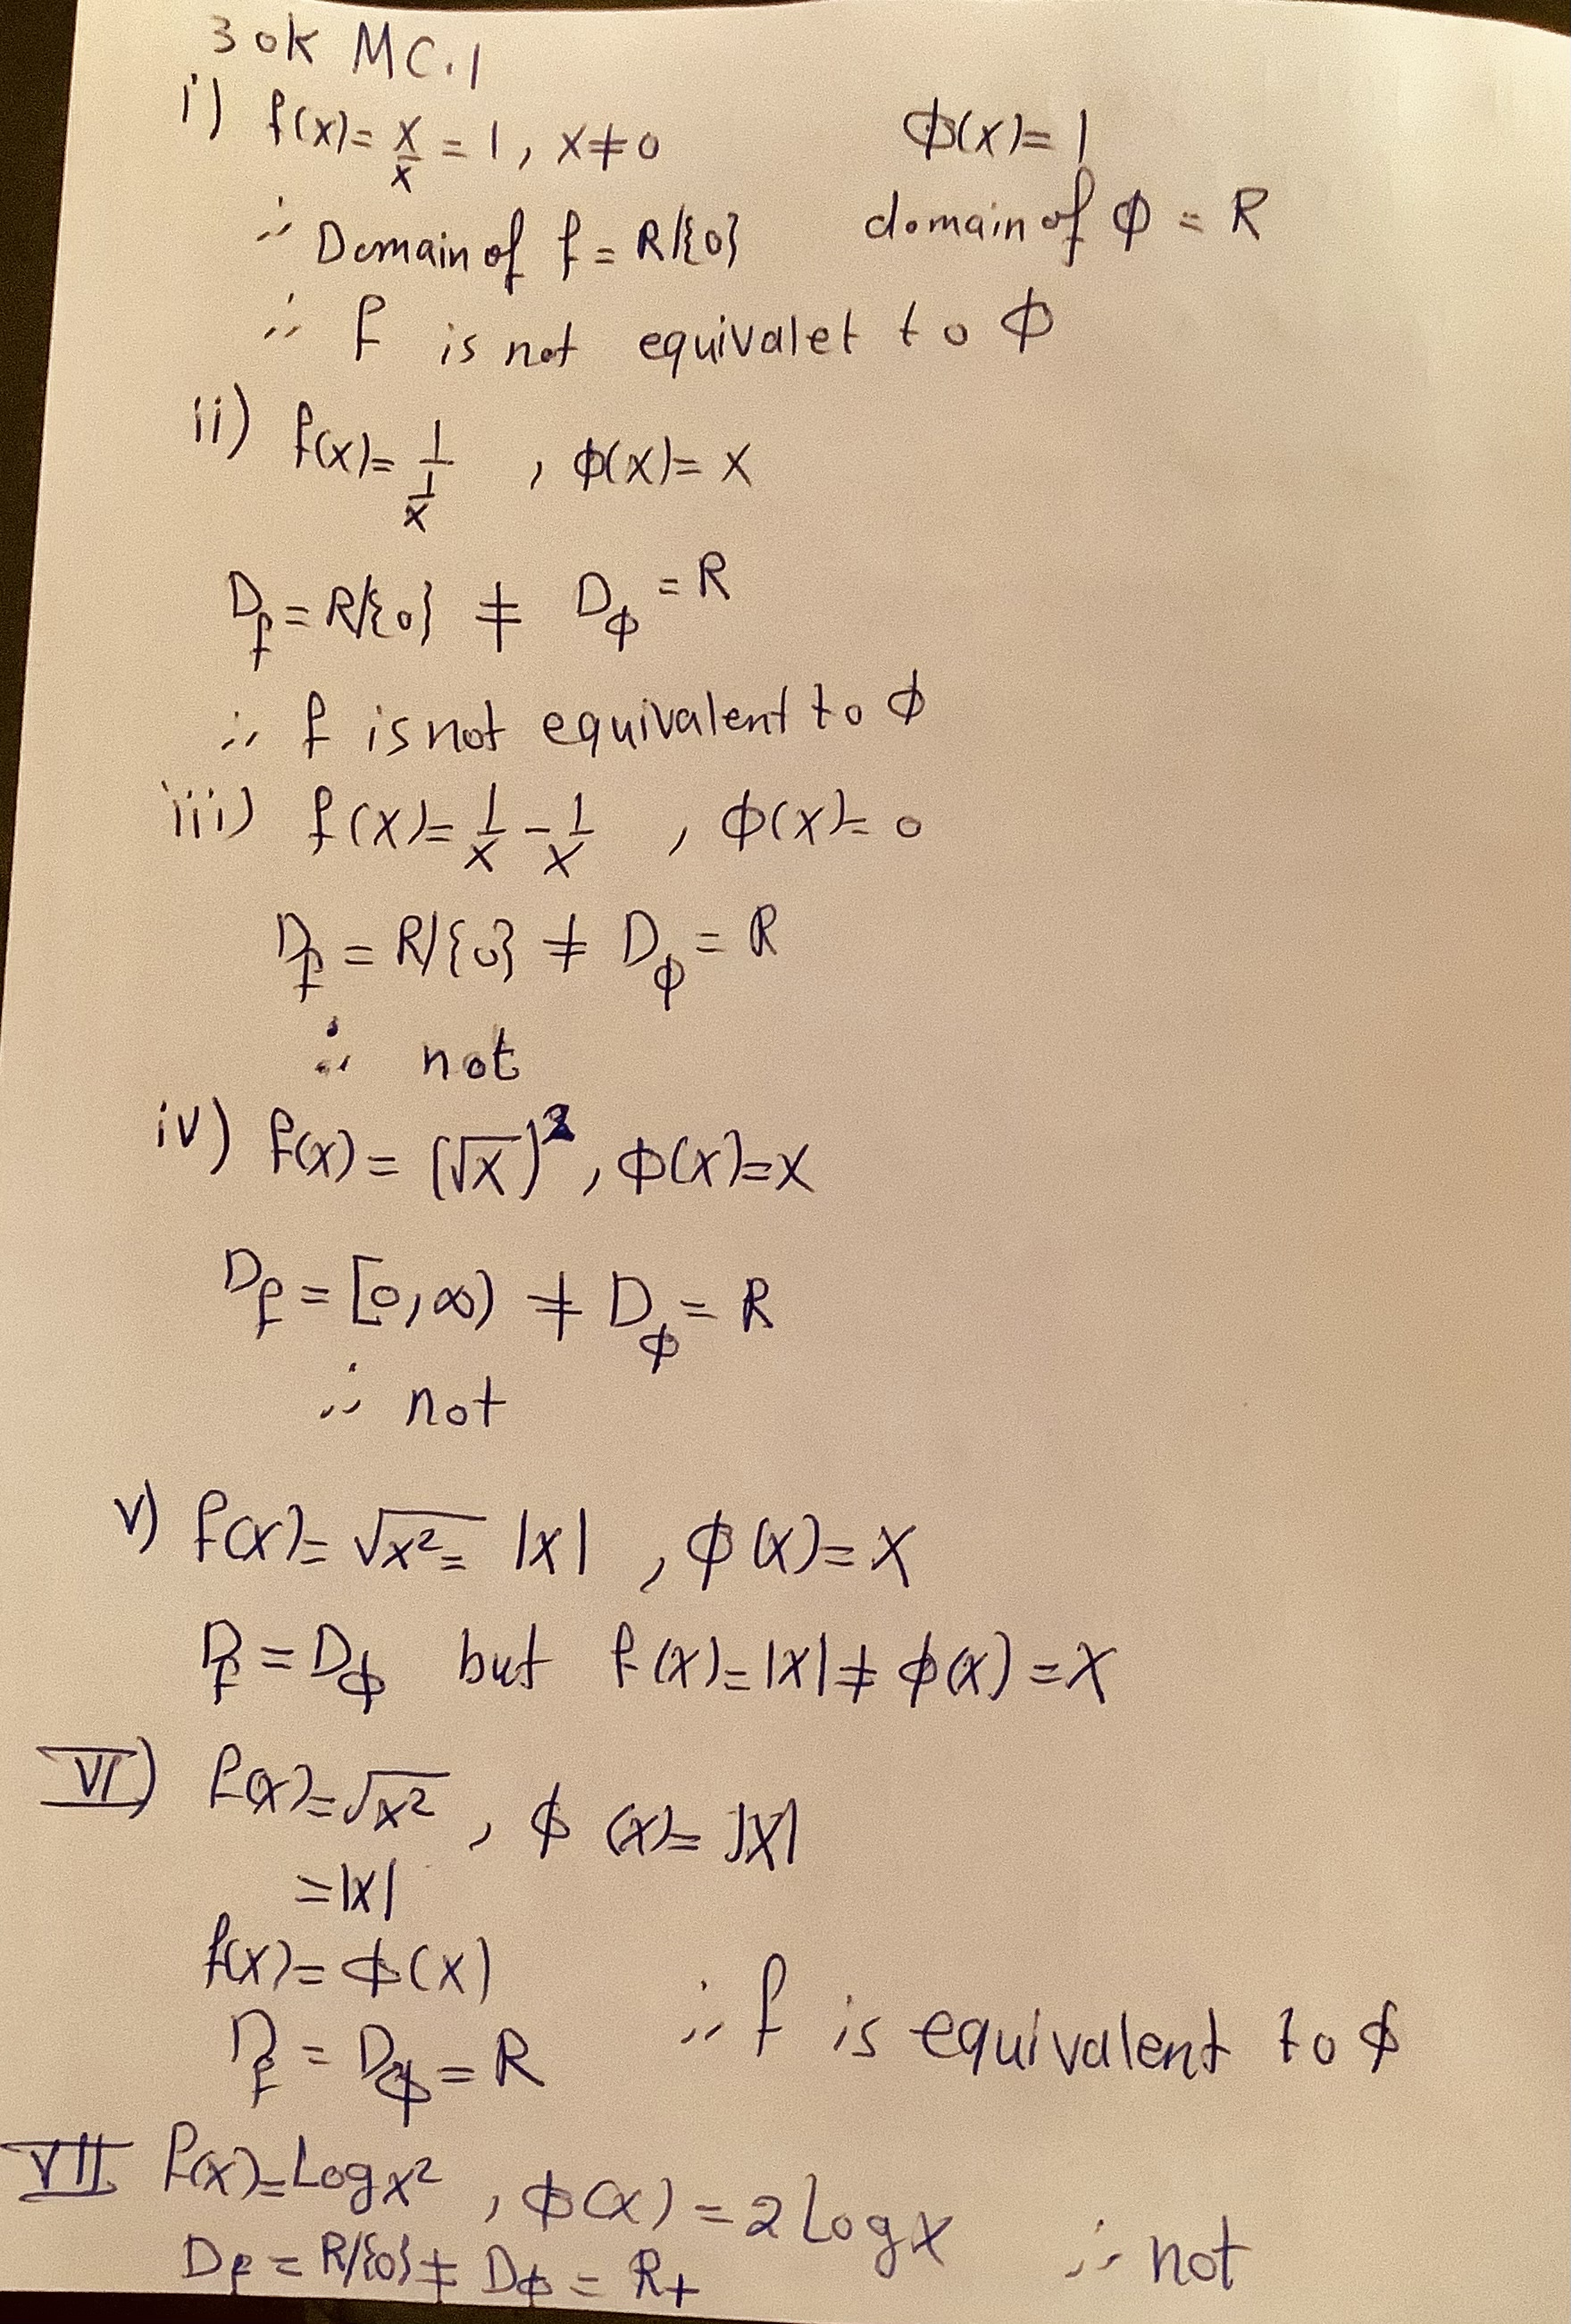 30k MC.1
i) f(x)= x/x = 1, x≠0    ϕ(x)= 1
∴ Domain of f = R/{0}    domain of ϕ = R
∴ f is not equivalet to ϕ
ii) f(x)= 1/(1/x) , ϕ(x)= x
D_f = R/{0} ≠ D_ϕ = R
∴ f is not equivalent to ϕ
iii) f(x)= 1/x - 1/x , ϕ(x)= 0
D_f = R/{0} ≠ D_ϕ = R
∴ not
iv) f(x) = (√x)², ϕ(x)=x
D_f = [0,∞) ≠ D_ϕ = R
∴ not
v) f(x)= √x² = |x| , ϕ(x)= x
D_f = D_ϕ but f(x)=|x| ≠ ϕ(x) = x
VI) f(x)=√x² , ϕ(x)= |x|
=|x|
f(x)= ϕ(x)
D_f = D_ϕ = R    ∴ f is equivalent to ϕ
VII f(x)=Log x² , ϕ(x) = 2 Log x    ∴ not
D_f = R/{0} ≠ D_ϕ = R+